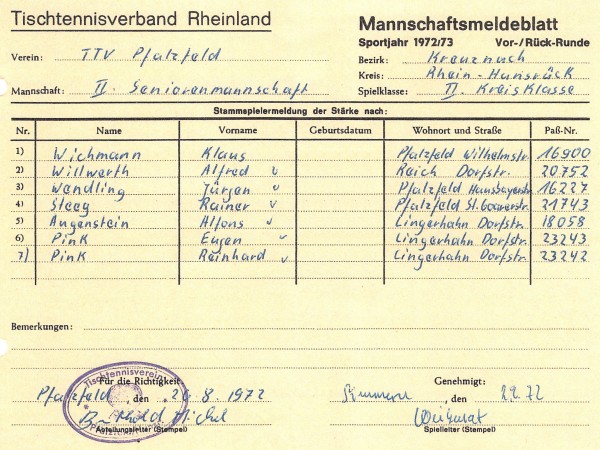 Tischtennisverband Rheinland
Mannschaftsmeldeblatt
Sportjahr 1972/73 Vor-/Rück-Runde
Verein: TTV Pfalzfeld
Bezirk: Kreuznach
Kreis: Rhein-Hunsrück
Mannschaft: II. Seniorenmannschaft
Spielklasse: II. Kreisklasse
Stammspielermeldung der Stärke nach:
Nr. Name Vorname Geburtsdatum Wohnort und Straße Paß-Nr.
1) Wichmann Klaus Pfalzfeld Wilhelmstr. 16900
2) Willwerth Alfred Reich Dorfstr. 20752
3) Wendling Jürgen Pfalzfeld Hausbayerstr. 16227
4) Steeg Rainer Pfalzfeld St. Goarerstr. 21743
5) Augenstein Alfons Lingerhahn Dorfstr. 18058
6) Pink Eugen Lingerhahn Dorfstr. 23243
7) Pink Reinhard Lingerhahn Dorfstr. 23242
Bemerkungen:
Für die Richtigkeit
Genehmigt:
Tischtennisverein
Pfalzfeld, den 26.8.1972
, den
Michel
Abteilungsleiter (Stempel)
Spielleiter (Stempel)